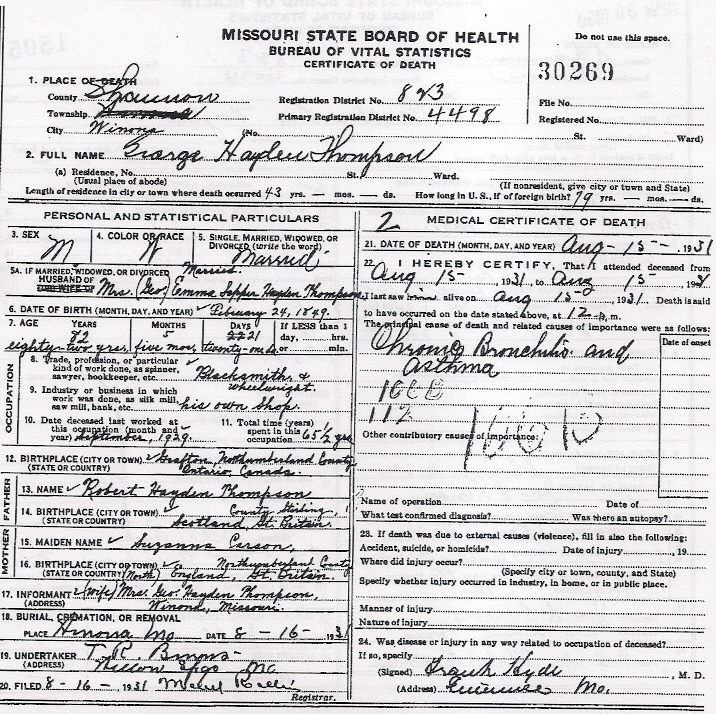 MISSOURI STATE BOARD OF HEALTH
BUREAU OF VITAL STATISTICS
CERTIFICATE OF DEATH
Do not use this space.
30269
1. PLACE OF DEATH
County Shannon
Registration District No. 823
File No.
Township
Primary Registration District No. 4498
Registered No.
City Winona
(No. St. Ward)
2. FULL NAME George Hayden Thompson
(a) Residence, No. St. Ward.
(Usual place of abode)
(If nonresident, give city or town and State)
Length of residence in city or town where death occurred 43 yrs. — mos. — ds. How long in U.S., if of foreign birth? 79 yrs. — mos. — ds.
PERSONAL AND STATISTICAL PARTICULARS
3. SEX
M
4. COLOR OR RACE
W
5. SINGLE, MARRIED, WIDOWED, OR DIVORCED (write the word)
Married
5A. IF MARRIED, WIDOWED, OR DIVORCED Married.
HUSBAND OF
(OR) WIFE OF Mrs. (Geo) Emma Hayden Thompson
6. DATE OF BIRTH (MONTH, DAY, AND YEAR) February 24, 1849.
7. AGE YEARS MONTHS DAYS If LESS than 1 day, hrs. or min.
82 5 21
eighty-two yrs, five mos, twenty-one ds.
OCCUPATION
8. Trade, profession, or particular kind of work done, as spinner, sawyer, bookkeeper, etc. Blacksmith & wheelwright.
9. Industry or business in which work was done, as silk mill, saw mill, bank, etc. his own Shop.
10. Date deceased last worked at this occupation (month and year) September, 1929.
11. Total time (years) spent in this occupation 65 1/2 yrs
12. BIRTHPLACE (CITY OR TOWN) Grafton, Northumberland County
(STATE OR COUNTRY) Ontario Canada.
FATHER
13. NAME Robert Hayden Thompson
14. BIRTHPLACE (CITY OR TOWN) County Stirling,
(STATE OR COUNTRY) Scotland, Gt. Britain.
MOTHER
15. MAIDEN NAME Suzanna Carson,
16. BIRTHPLACE (CITY OR TOWN) Northumberland County
(STATE OR COUNTRY) (North) England, Gt. Britain.
17. INFORMANT (wife) Mrs. Geo. Hayden Thompson,
(ADDRESS) Winona, Missouri.
18. BURIAL, CREMATION, OR REMOVAL
PLACE Winona Mo DATE 8 - 16 - 1931
19. UNDERTAKER T. R. Burns
(ADDRESS) Willow Spgs Mo
20. FILED 8 - 16 - 1931
Registrar.
2 MEDICAL CERTIFICATE OF DEATH
21. DATE OF DEATH (MONTH, DAY, AND YEAR) Aug - 15 - 1931
22. I HEREBY CERTIFY, That I attended deceased from
Aug 15 - 1931, to Aug 15 - 1931
I last saw him alive on Aug 15 - 1931. Death is said
to have occurred on the date stated above, at 12 m.
The principal cause of death and related causes of importance were as follows:
Date of onset
Chronic Bronchitis and
Asthma
112
Other contributory causes of importance:
Name of operation Date of
What test confirmed diagnosis? Was there an autopsy?
23. If death was due to external causes (violence), fill in also the following:
Accident, suicide, or homicide? Date of injury , 19
Where did injury occur?
(Specify city or town, county, and State)
Specify whether injury occurred in industry, in home, or in public place.
Manner of injury
Nature of injury
24. Was disease or injury in any way related to occupation of deceased?
If so, specify
(Signed) Frank Hyde, M. D.
(Address) Eminence Mo.